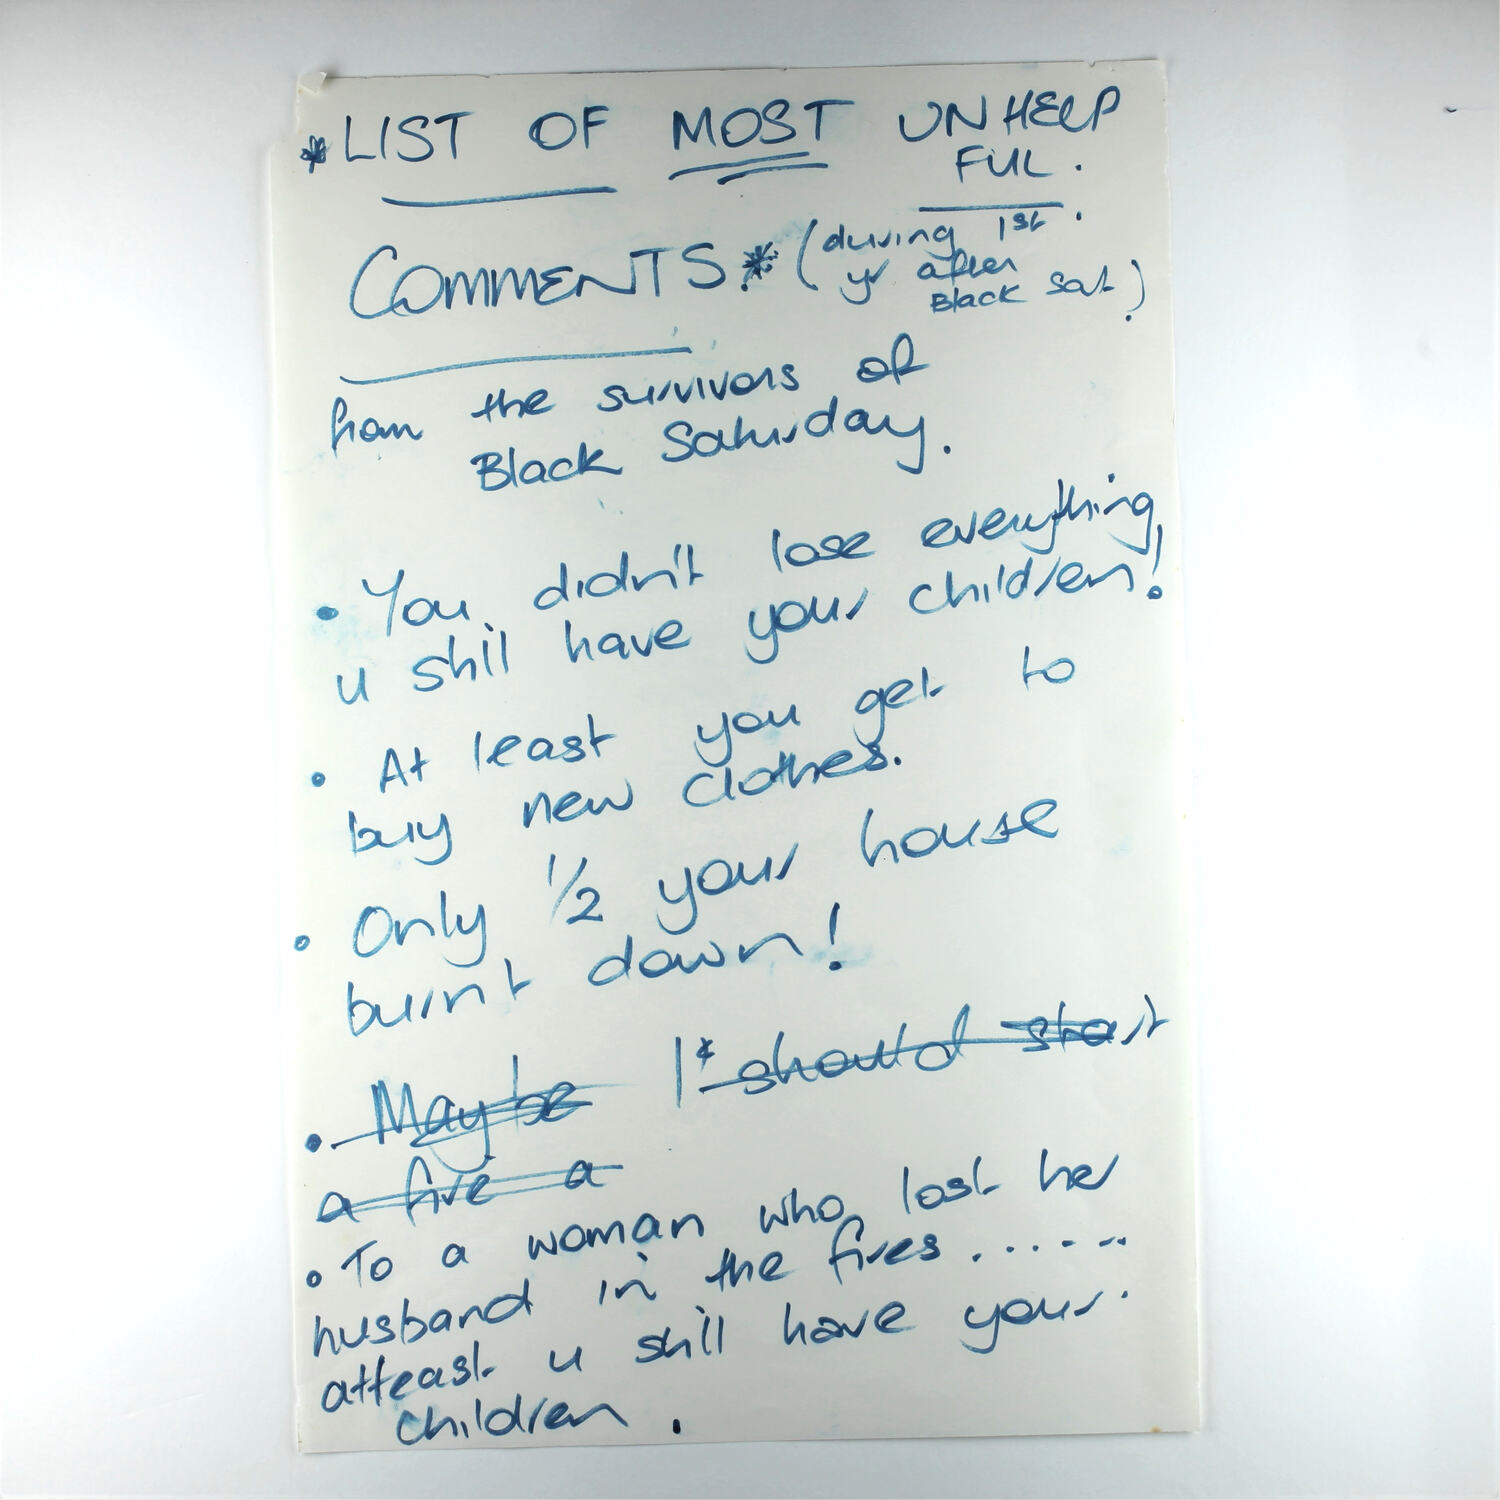 *LIST OF MOST UNHELP
FUL.
COMMENTS.* (during 1st
yr after
Black Sat.)
from the survivors of
Black Saturday.
• You didn't lose everything,
u still have your children!
• At least you get to
buy new clothes.
• Only 1/2 your house
burnt down!
• Maybe I* should start
a fire a
• To a woman who lost her
husband in the fires......
atleast u still have your.
children.